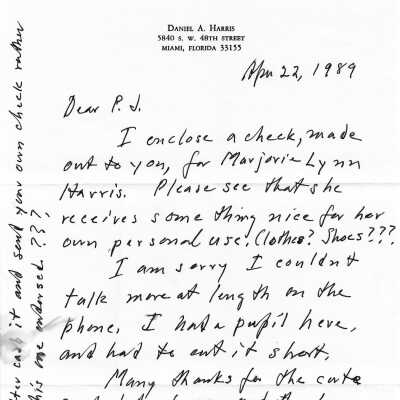 DANIEL A. HARRIS
5840 S. W. 48TH STREET
MIAMI, FLORIDA 33155
Apr 22, 1989
Dear P. J.
I enclose a check, made
out to you, for Marjorie Lynn
Harris. Please see that she
receives some thing nice for her
own personal use. Clothes? Shoes???
I am sorry I couldn't
talk more at length on the
phone. I had a pupil here,
and had to cut it short.
Many thanks for the cute
cash it and send your own check rather
this one endorsed. ???